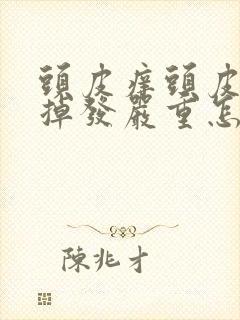 頭皮癢頭皮
掉發嚴重怎
陳兆才